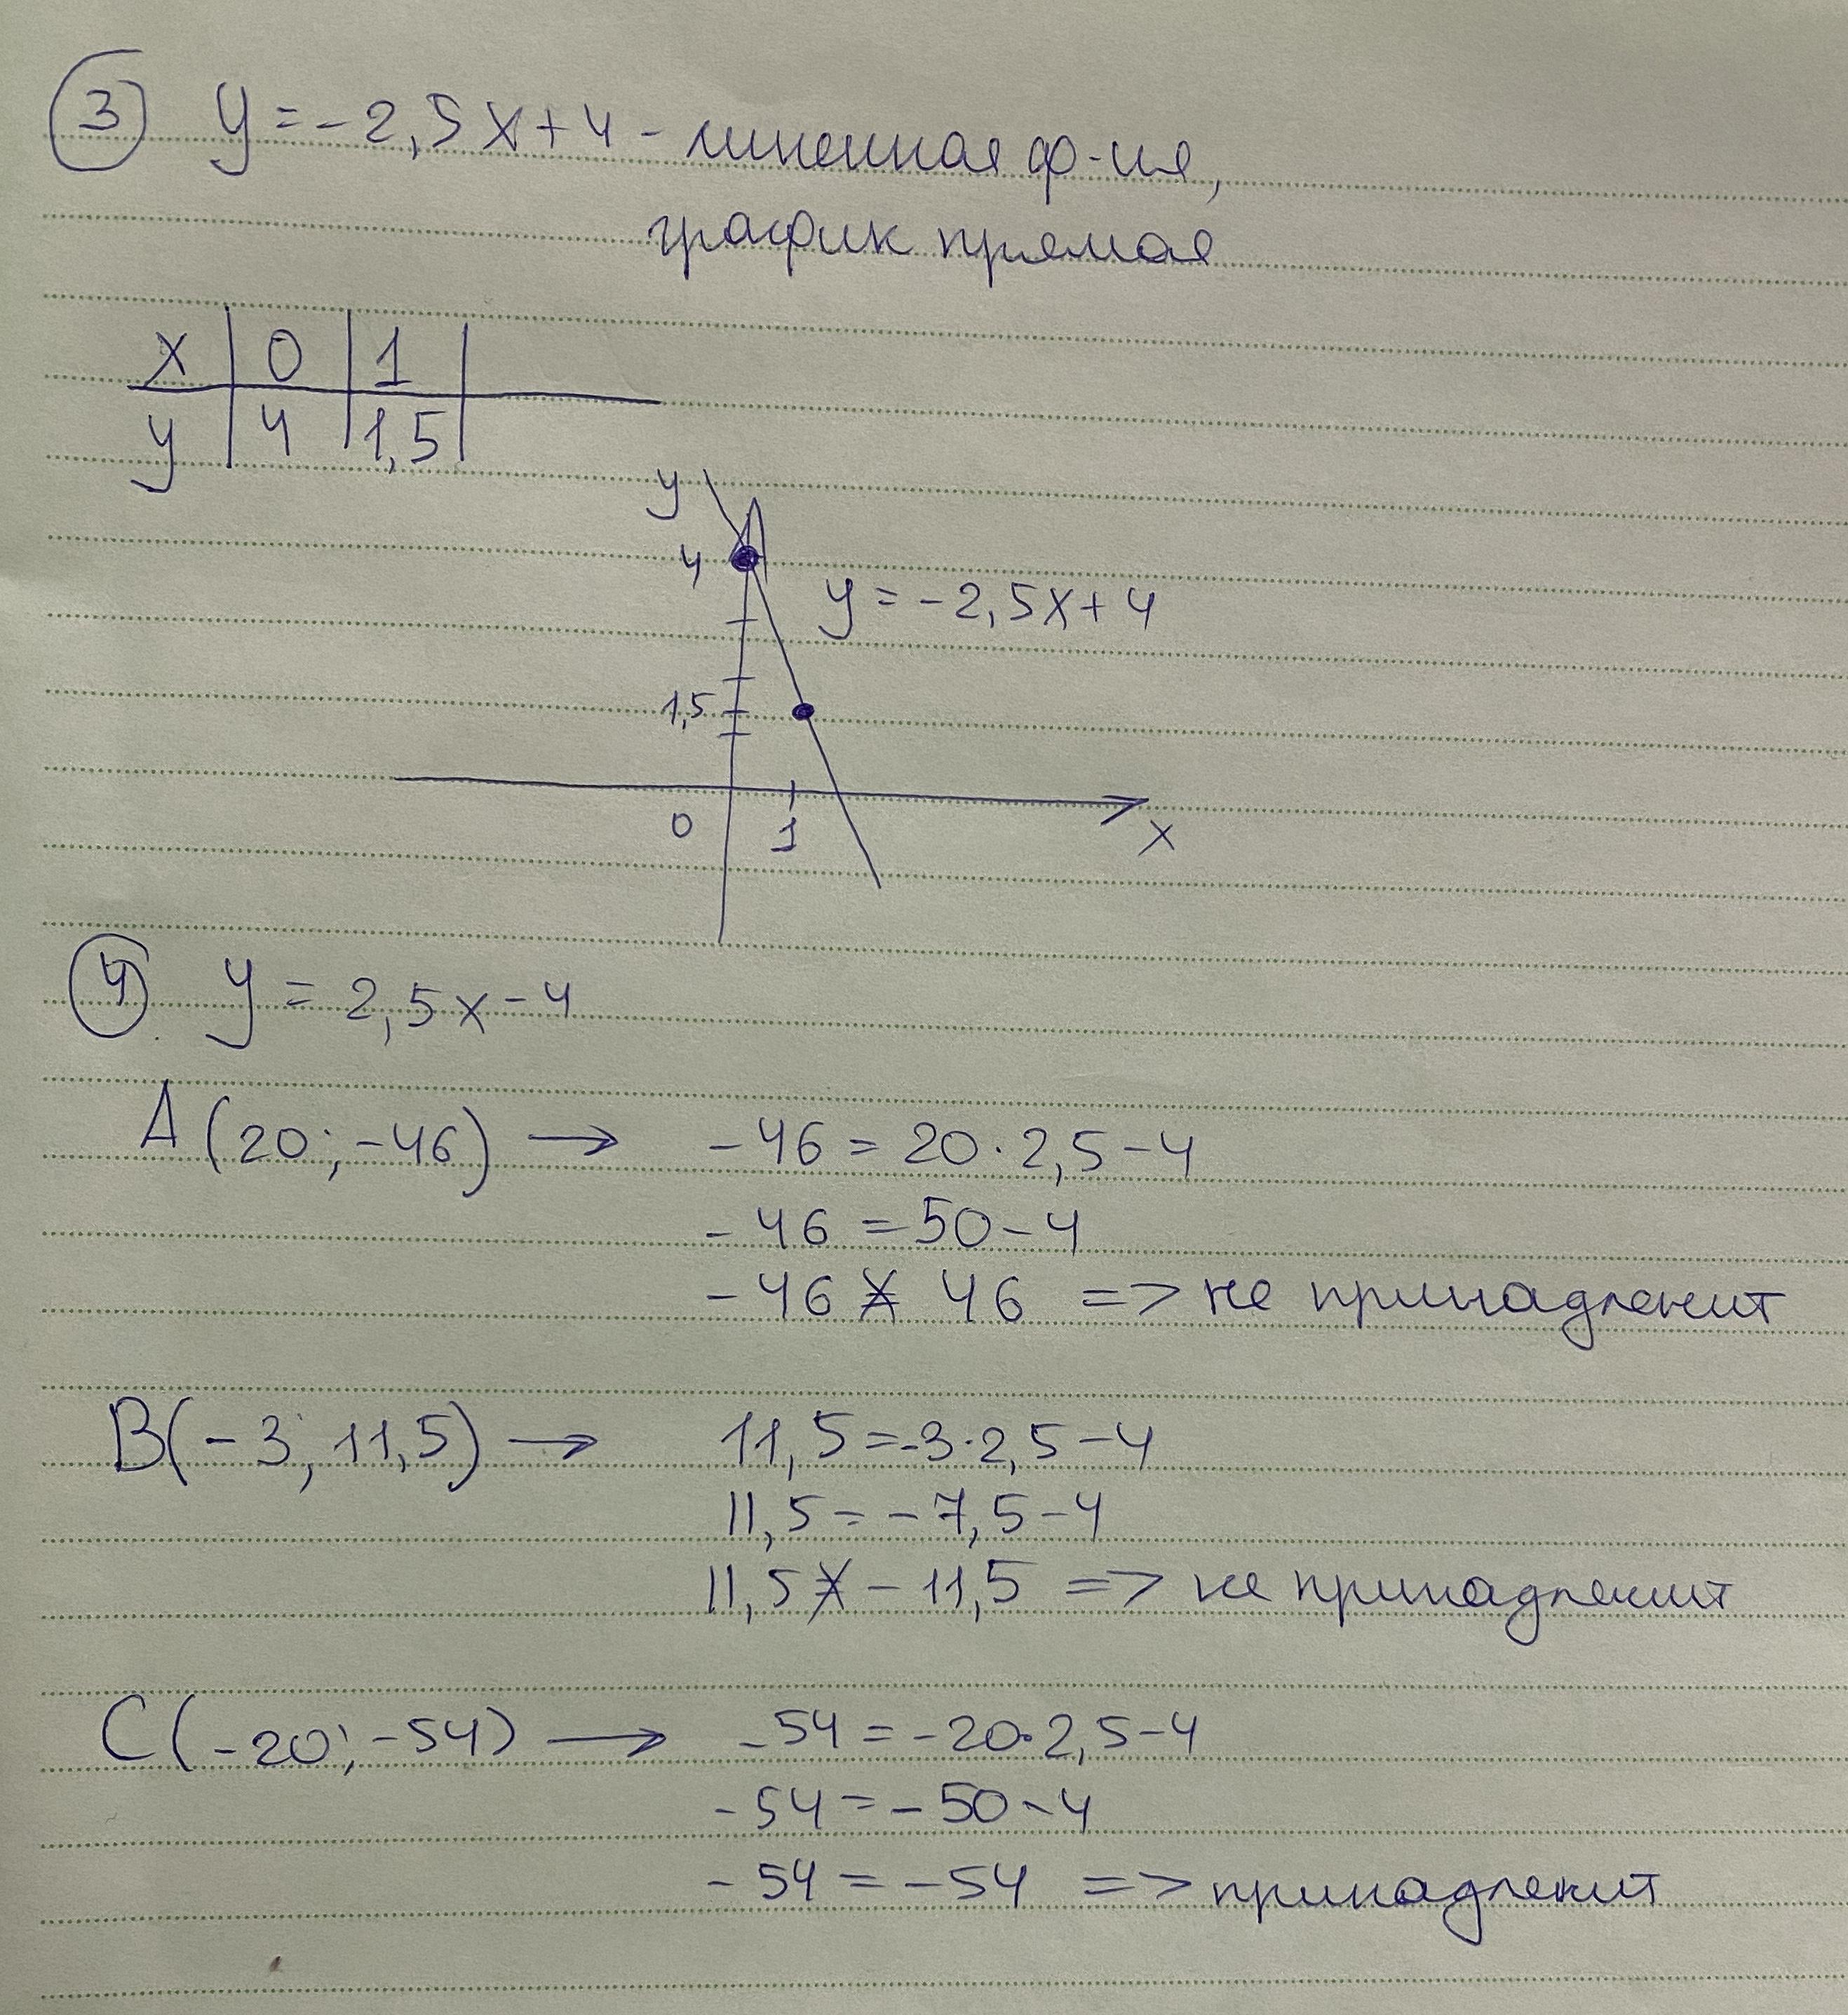 ③ y = -2,5x + 4 - линейная ф-ия,
график прямая
x | 0 | 1 |
y | 4 | 1,5 |
y
4
y = -2,5x + 4
1,5
0 1 x
④. y = 2,5x - 4
A (20; -46) → -46 = 20 · 2,5 - 4
-46 = 50 - 4
-46 ≠ 46 => не принадлежит
B(-3; 11,5) → 11,5 = -3 · 2,5 - 4
11,5 = -7,5 - 4
11,5 ≠ -11,5 => не принадлежит
C(-20; -54) → -54 = -20 · 2,5 - 4
-54 = -50 - 4
-54 = -54 => принадлежит